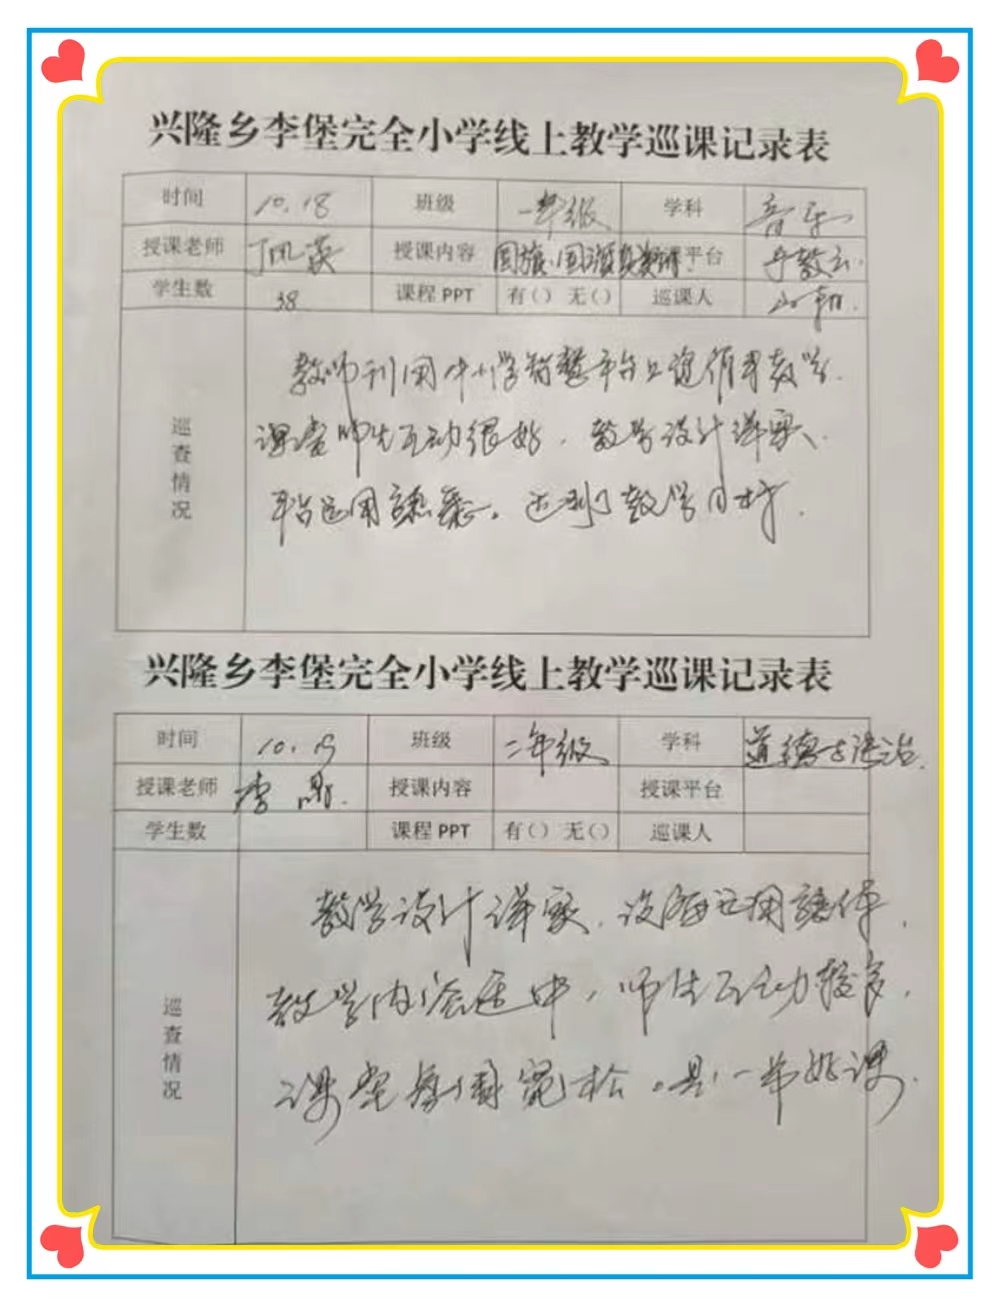 兴隆乡李堡完全小学线上教学巡课记录表
时间 10.18 班级 一年级 学科 音乐
授课老师 丁凤英 授课内容 国旗国旗真美丽 授课平台 宁教云
学生数 38 课程PPT 有() 无() 巡课人
巡查情况
教师利用中小学智慧平台上进行教学.
课堂师生互动很好、教学设计详实、
平台运用熟悉。达到了教学目标.
兴隆乡李堡完全小学线上教学巡课记录表
时间 10.19 班级 二年级 学科 道德与法治.
授课老师 李 授课内容 授课平台
学生数 课程PPT 有() 无() 巡课人
巡查情况
教学设计详实、设备运用
教学内容适中,师生互动较多,
课堂氛围宽松。是一节好课.